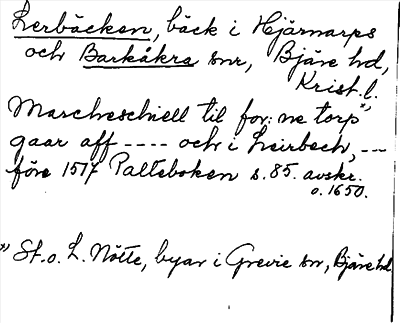 Lerbäcken, bäck i Hjärnarps
och Barkåkra snr, Bjäre hd,
Krist. l.
Marcheschiell til for: ne torp",
gaar aff ---- och i Leirbech, --
före 1517 Palteboken s. 85. avskr.
o. 1650.
" St. o. L. Nötte, byar i Grevie sn, Bjäre hd